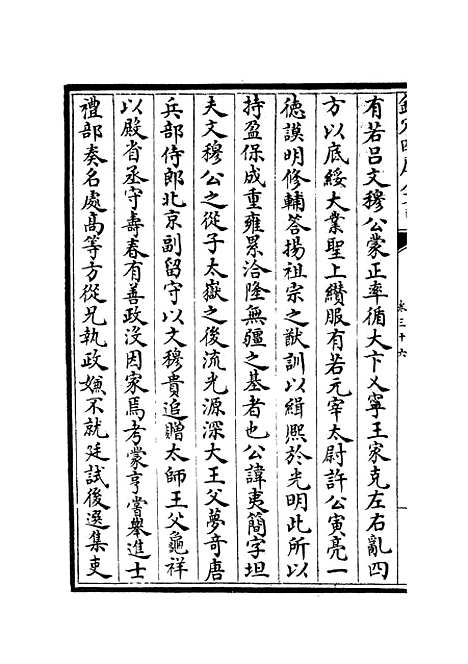 欽定四庫全書
卷三十六
有若吕文穆公蒙正率循大卞乂寧王家克左右亂四
方以底綏大業聖上纉服有若元宰太尉許公寅亮一
徳謨明修輔答揚祖宗之猷訓以緝熙於光明此所以
持盈保成重雍累洽隆無疆之基者也公諱夷簡字坦
夫文穆公之從子太嶽之後流光源深大王父夢竒唐
兵部侍郎北京副留守以文穆貴追贈太師王父龜祥
以殿省丞守壽春有善政沒因家焉考蒙亨嘗舉進士
禮部奏名處髙等方從兄執政嫌不就廷試後選集吏